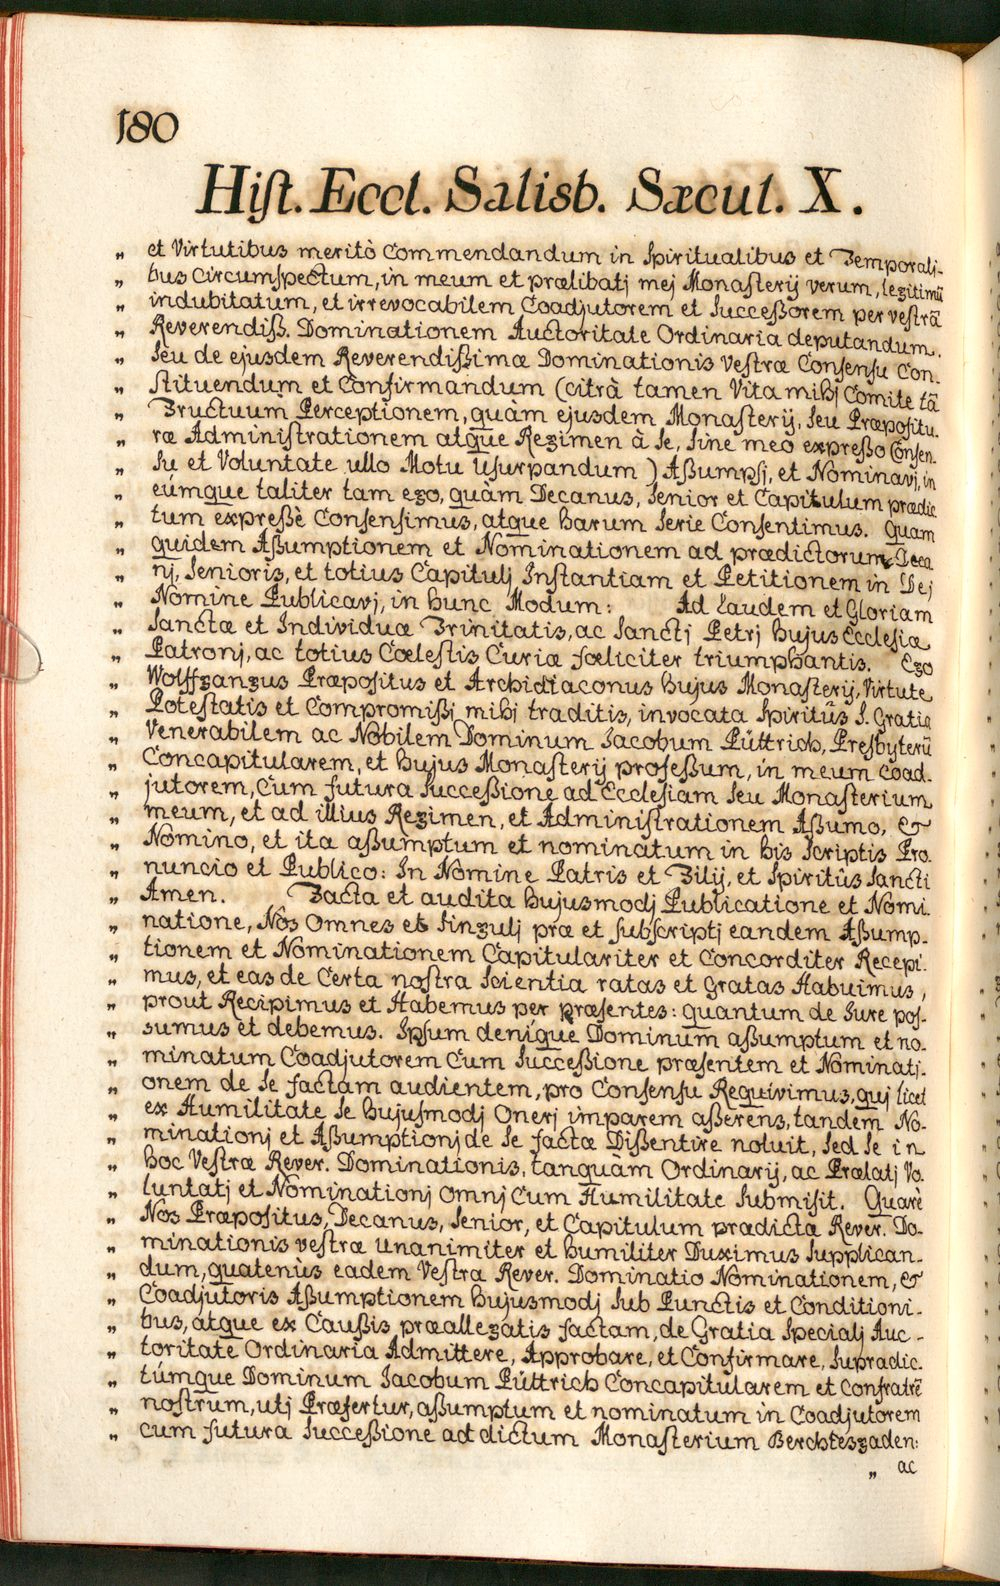 180
Hist. Eccl. Salisb. Sæcul. X.
„ et Virtutibus meritò Commendandum in Spiritualibus et Temporali-
„ bus Circumspectum, in meum et prælibatj mej Monasterij verum, legitimũ
„ indubitatum, et irrevocabilem Coadjutorem et Successorem per vestrã
„ Reverendiss. Dominationem Auctoritate Ordinaria deputandum.
„ Seu de ejusdem Reverendissimæ Dominationis Vestræ Consensu Con-
„ stituendum et Confirmandum (citrà tamen Vita mihj Comite tã
„ Fructuum Perceptionem, quàm ejusdem Monasterij, Seu Præpositu-
„ ræ Administrationem atque Regimen à Se, Sine meo expresso Consen-
„ Su et Voluntate ullo Motu Usurpandum) Assumpsj, et Nominavj, in
„ eúmque taliter tam ego, quàm Decanus, Senior et Capitulum prædic
„ tum expressè Consensimus, atque harum Serie Consentimus. Quam
„ quidem Assumptionem et Nominationem ad prædictorum Deca
„ nj, Senioris, et totius Capitulj Instantiam et Petitionem in Dej
„ Nomine Publicavj, in hunc Modum: Ad Laudem et Gloriam
„ Sanctæ et Individuæ Trinitatis, ac Sanctj Petrj hujus Ecclesiæ
„ Patronj, ac totius Cœlestis Curiæ fœliciter triumphantis. Ego
„ Wolffgangus Præpositus et Archidiaconus hujus Monasterij, Virtute
„ Potestatis et Compromissj mihj traditis, invocata Spiritûs S. Gratia
„ Venerabilem ac Nobilem Dominum Jacobum Püttrich, Presbyterũ
„ Concapitularem, et hujus Monasterij professum, in meum Coad-
„ jutorem, Cum futura Successione ad Ecclesiam Seu Monasterium
„ meum, et ad illius Regimen, et Administrationem Assumo, &
„ Nomino, et ita assumptum et nominatum in his Scriptis Pro-
„ nuncio et Publico: In Nomine Patris et Filij, et Spiritûs Sancti
„ Amen. Facta et audita hujusmodj Publicatione et Nomi-
„ natione, Nos Omnes et Singulj præ et subscriptj eandem Assump-
„ tionem et Nominationem Capitulariter et Concorditer Recepi-
„ mus, et eas de Certa nostra Scientia ratas et gratas Habuimus,
„ prout Recipimus et Habemus per præsentes: quantum de Jure pos-
„ sumus et debemus. Ipsum denique Dominum assumptum et no-
„ minatum Coadjutorem Cum Successione præsentem et Nominatj-
„ onem de Se factam audientem, pro Consensu Requivimus, quj licet
„ ex Humilitate Se hujusmodj Onerj imparem asserens, tandem No-
„ minationj et Assumptionj de Se factæ Dissentire noluit, Sed Se in
„ hoc Vestræ Rever. Dominationis, tanquàm Ordinarij, ac Prælatj Vo-
„ luntatj et Nominationj omnj Cum Humilitate Submisit. Quarè
„ Nos Præpositus, Decanus, Senior, et Capitulum prædicta Rever. Do-
„ minationis vestræ Unanimiter et humiliter Duximus Supplican-
„ dum, quatenùs eadem Vestra Rever. Dominatio Nominationem, &
„ Coadjutoris Assumptionem hujusmodj Sub Punctis et Conditioni-
„ bus, atque ex Caussis præallegatis factam, de Gratia Specialj Auc-
„ toritate Ordinaria Admittere, Approbare, et Confirmare, Supradic-
„ túmque Dominum Jacobum Püttrich Concapitularem et Confratrẽ
„ nostrum, utj Præfertur, assumptum et nominatum in Coadjutorem
„ cum futura Successione ad dictum Monasterium Berchtesgaden:
„ ac